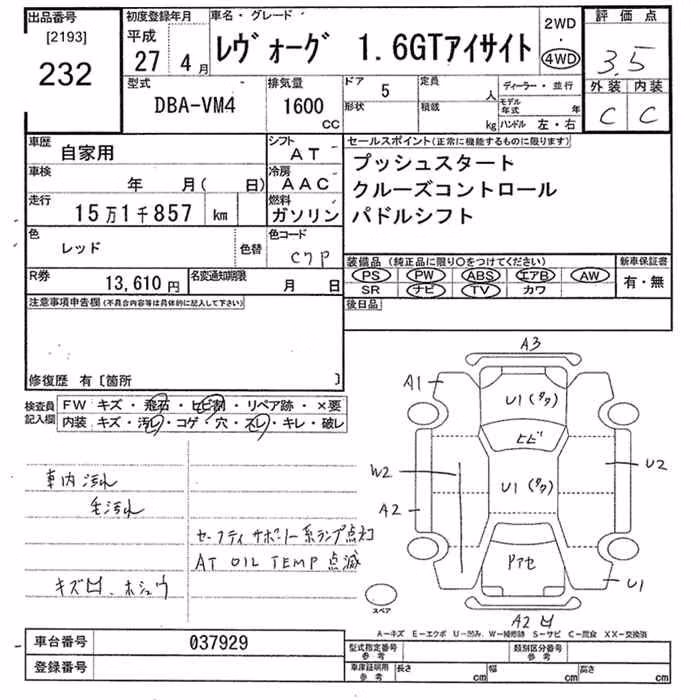 出品番号
[2193]
232
初度登録年月
平成
27 4月
車名・グレード
レヴォーグ 1.6GTアイサイト
2WD
・
4WD
評価点
3.5
外装 内装
C C
型式
DBA-VM4
排気量
1600
CC
ドア 5
形状
定員 人
積載 kg
ディーラー・並行
モデル年式 年
ハンドル 左・右
車歴
自家用
シフト
AT
車検
年 月( 日)
冷房
AAC
走行
15万1千857 km
燃料
ガソリン
色
レッド
色替
色コード
C7P
R券
13,610円
名変通知期限
月 日
セールスポイント(正常に機能するものに限ります)
プッシュスタート
クルーズコントロール
パドルシフト
装備品(純正品に限り○をつけてください)
PS PW ABS エアB AW
SR ナビ TV カワ
新車保証書
有・無
後日品
注意事項申告欄(不具合内容等は具体的に記入して下さい)
修復歴 有〔箇所 〕
検査員
記入欄
FW キズ・飛石・ヒビ割・リペア跡・×要
内装 キズ・汚レ・コゲ・穴・スレ・キレ・破レ
車内汚れ
毛汚れ
セーフティサポート系ランプ点灯
AT OIL TEMP点滅
キズ凹、ホシュウ
A3
A1
U1(タワ)
ヒビ
W2
U1(タワ)
U2
A2
ドアセ
U1
A2凹
スペア
A－キズ E－エクボ U－凹み、W－補修跡 S－サビ C－腐食 XX－交換済
車台番号
037929
登録番号
型式指定番号
参考
類別区分番号
参考
車庫証明用
参考
長さ cm
幅 cm
高さ cm